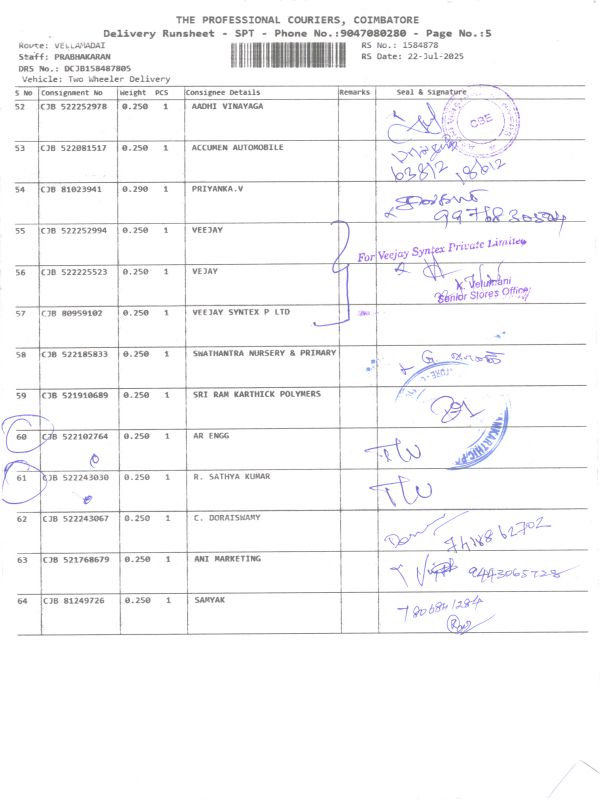 THE PROFESSIONAL COURIERS, COIMBATORE
Delivery Runsheet - SPT - Phone No.:9047080280 - Page No.:5
Route: VELLAMADAI RS No.: 1584878
Staff: PRABHAKARAN RS Date: 22-Jul-2025
DRS No.: DCJB158487805
Vehicle: Two Wheeler Delivery
S No Consignment No Weight PCS Consignee Details Remarks Seal & Signature
52 CJB 522252978 0.250 1 AADHI VINAYAGA CBE
53 CJB 522081517 0.250 1 ACCUMEN AUTOMOBILE
63812 18612
54 CJB 81023941 0.290 1 PRIYANKA.V
55 CJB 522252994 0.250 1 VEEJAY
For Veejay Syntex Private Limited
56 CJB 522225523 0.250 1 VEJAY
K. Velumani
Senior Stores Officer
57 CJB 80959102 0.250 1 VEEJAY SYNTEX P LTD
58 CJB 522185833 0.250 1 SWATHANTRA NURSERY & PRIMARY
59 CJB 521910689 0.250 1 SRI RAM KARTHICK POLYMERS
60 CJB 522102764 0.250 1 AR ENGG
61 CJB 522243030 0.250 1 R. SATHYA KUMAR
62 CJB 522243067 0.250 1 C. DORAISWAMY
7418862702
63 CJB 521768679 0.250 1 ANI MARKETING
9443065728
64 CJB 81249726 0.250 1 SAMYAK
7806841284